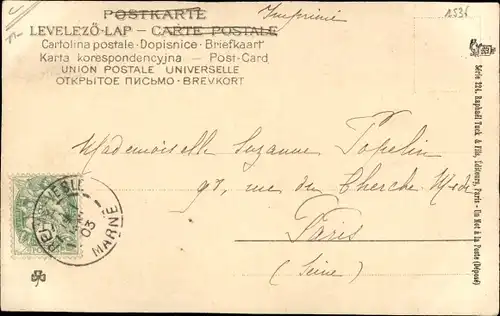 POSTKARTE
Imprimé
1536
LEVELEZÖ-LAP — CARTE POSTALE
Cartolina postale - Dopisnice - Briefkaart
Karta korespondencyjna — Post-Card
UNION POSTALE UNIVERSELLE
ОТКРЫТОЕ ПИСЬМО - BREVKORT
Mademoiselle Suzanne Popelin
98, rue du Cherche-Midi
Paris
(Seine)
03
MARNE
Série 224. Raphaël Tuck & Fils, Editeurs, Paris - Un Mot à la Poste (Déposé)